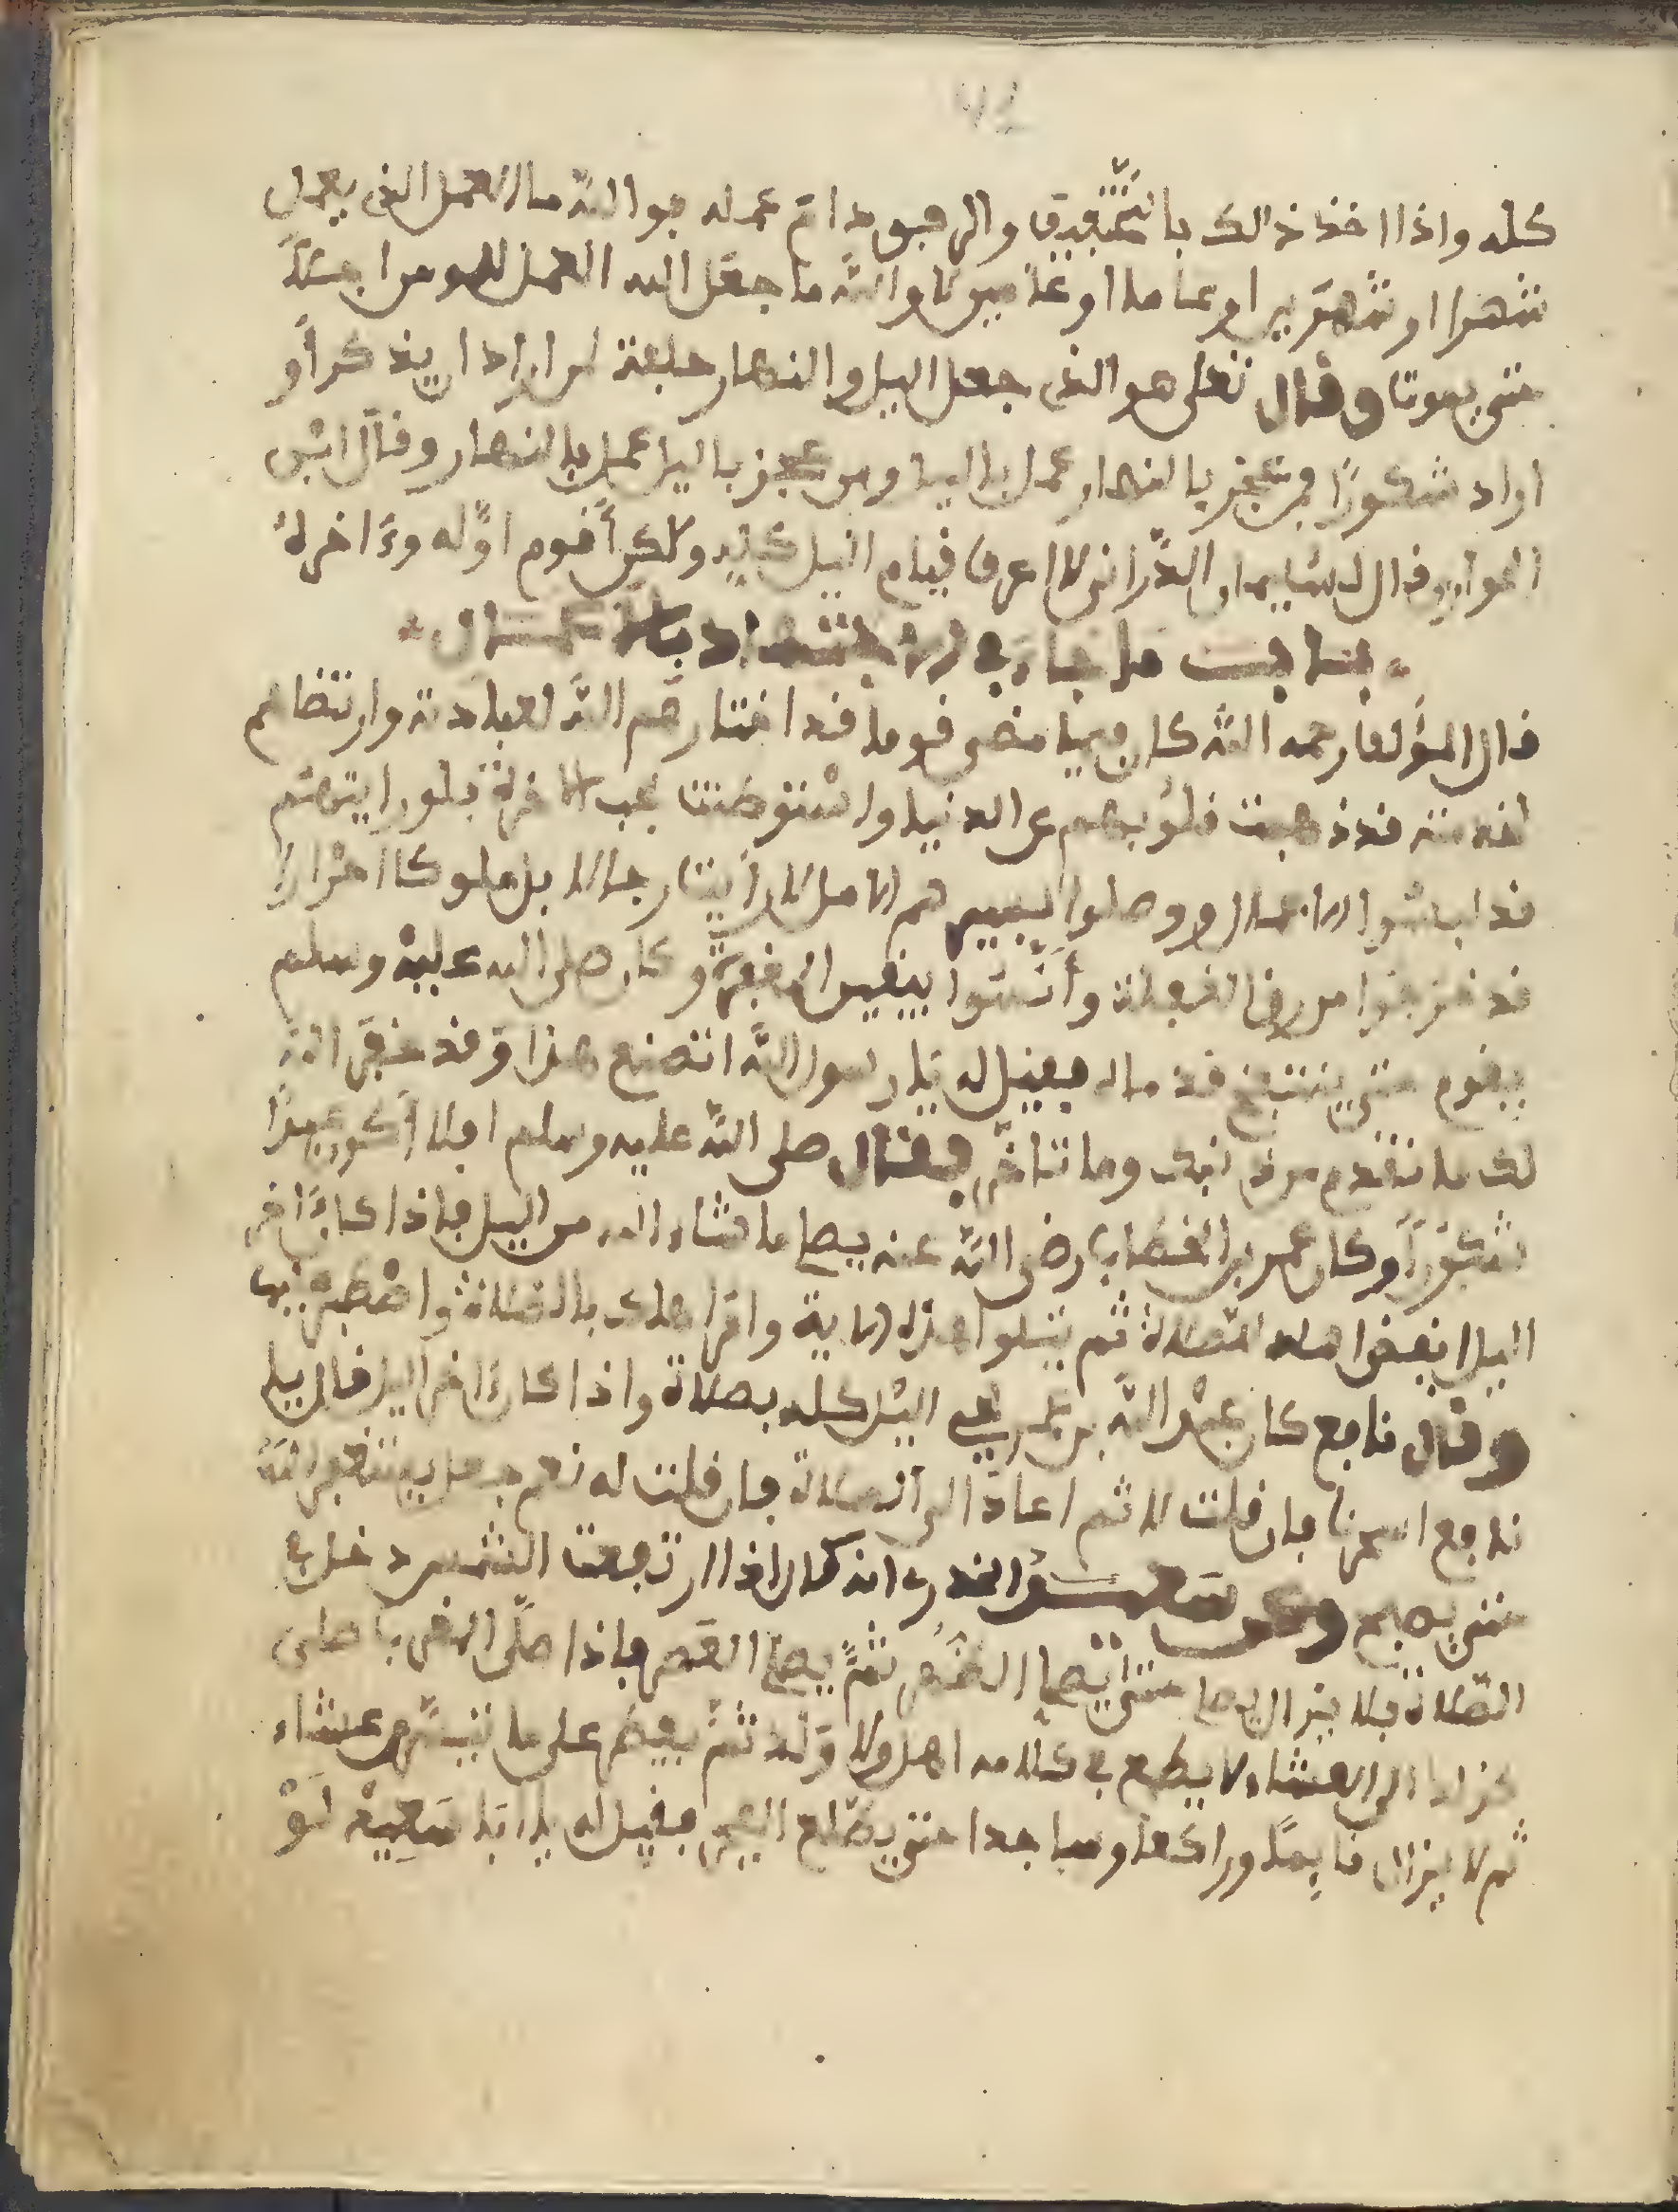 كله واذا اخذ ذالك بالتخفيف والرفق دام عمله فوالله ما العمل الذى يعمل
شهرا او شهرين او عاما او عامين لا والله ما جعل الله العمل للمومن اجلا
حتى يموتا وقال تعلى هو الذى جعل اليل والنهار خلفة لمن اراد ان يذكر أو
اراد شكورًا فمن عجز بالنهار عمل باليل ومن عجز باليل عمل بالنهار وقال ابن
المواز وقال لسليمان الدّرانى لا اعرف قيام اليل كله ولكن أقوم اوّله وءاخرهُ
باب ما جاء في الاجتهاد بالاعمال
قال المؤلف رحمه الله كان فيما مضى قوما قد اختارهم الله لعبادته وارتضاهم
لخدمته قد ذهبت قلُوبهم عن الدنيا واسْتوطنت بحب الاخرة فلو رايتهم
قد ابشوا الاعمال ووصلوا هم الامل لا رأيت رجالا بل ملوكا احرارا
قد خرجوا من رق الغفلة وأنسُوا بيقين المعرفة وكان صلى الله عليه وسلم
يقوم حتى ينتفخ قدماه فقيل له يا رسول الله اتصنع هذا وقد غفر الله
لك ما تقدم من ذنبك وما تاخّر فقال صلى الله عليه وسلم افلا أكون عبدًا
شكورًا وكان عمر بن الخطاب رضى الله عنه يصلى ما شاء الله من اليل فاذا كان ءاخر
اليل ايقظ اهله للصلاة ثم يتلوا هذه الاية وامر اهلك بالصلاة واصْطبر عليها
وقال نافع كان عبد الله بن عمر يحي اليل كله بصلاة واذا كان ءاخر اليل قال يا
نافع اسحرنا فان قلت لا ثم اعاد الى الصلاة فان قلت له نعم جعل يستغفر الله
حتى يصبح وعن سعيد الخدرى انه كان اذا ارتفعت الشمس دخل في
الصّلاة فلا يزال يصلى حتى يصلى الظهر ثمّ يصلى العصر فاذا صلّى المغرب صلى
كذلك الى العشاء لا يطمع في كلامه اهل ولا وَلد ثمّ يفطر على ما تيسّر من عشاء
ثم لا يزال قايما وراكعا وساجدا حتى يطلع الفجر فقيل له يا ابا سَعيد لَوْ